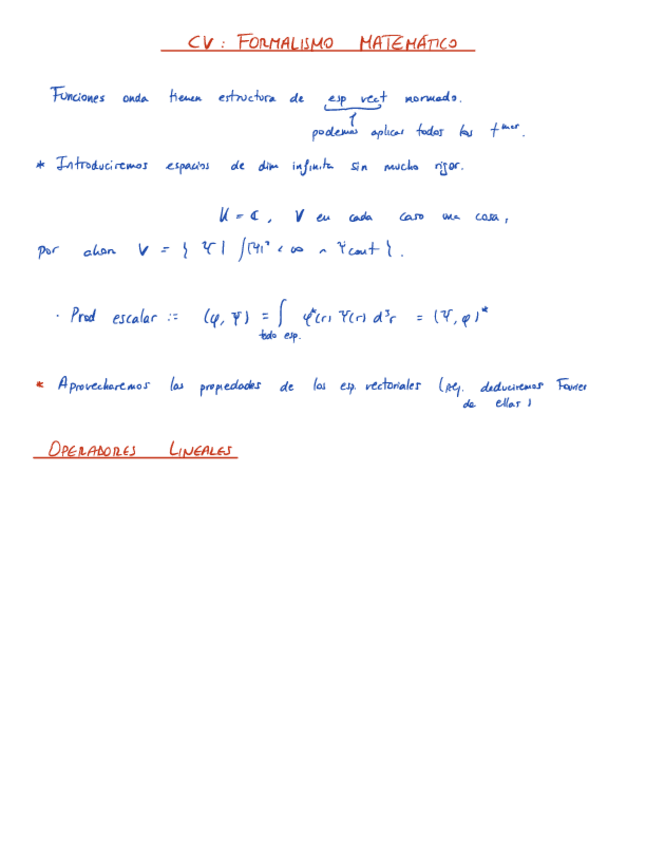 CV: FORMALISMO MATEMÁTICO
Funciones onda tienen estructura de esp vect normado.
podemos aplicar todos los tmas.
* Introduciremos espacios de dim infinita sin mucho rigor.
K = ℂ, V en cada caso una cosa,
por ahora V = { Ψ | ∫|Ψ|² < ∞ ∧ Ψ cont }.
· Prod escalar := (φ, Ψ) = ∫ φ*(r) Ψ(r) d³r = (Ψ, φ)*
todo esp.
* Aprovecharemos las propiedades de los esp. vectoriales (pej. deduciremos Fourier
de ellas)
OPERADORES LINEALES